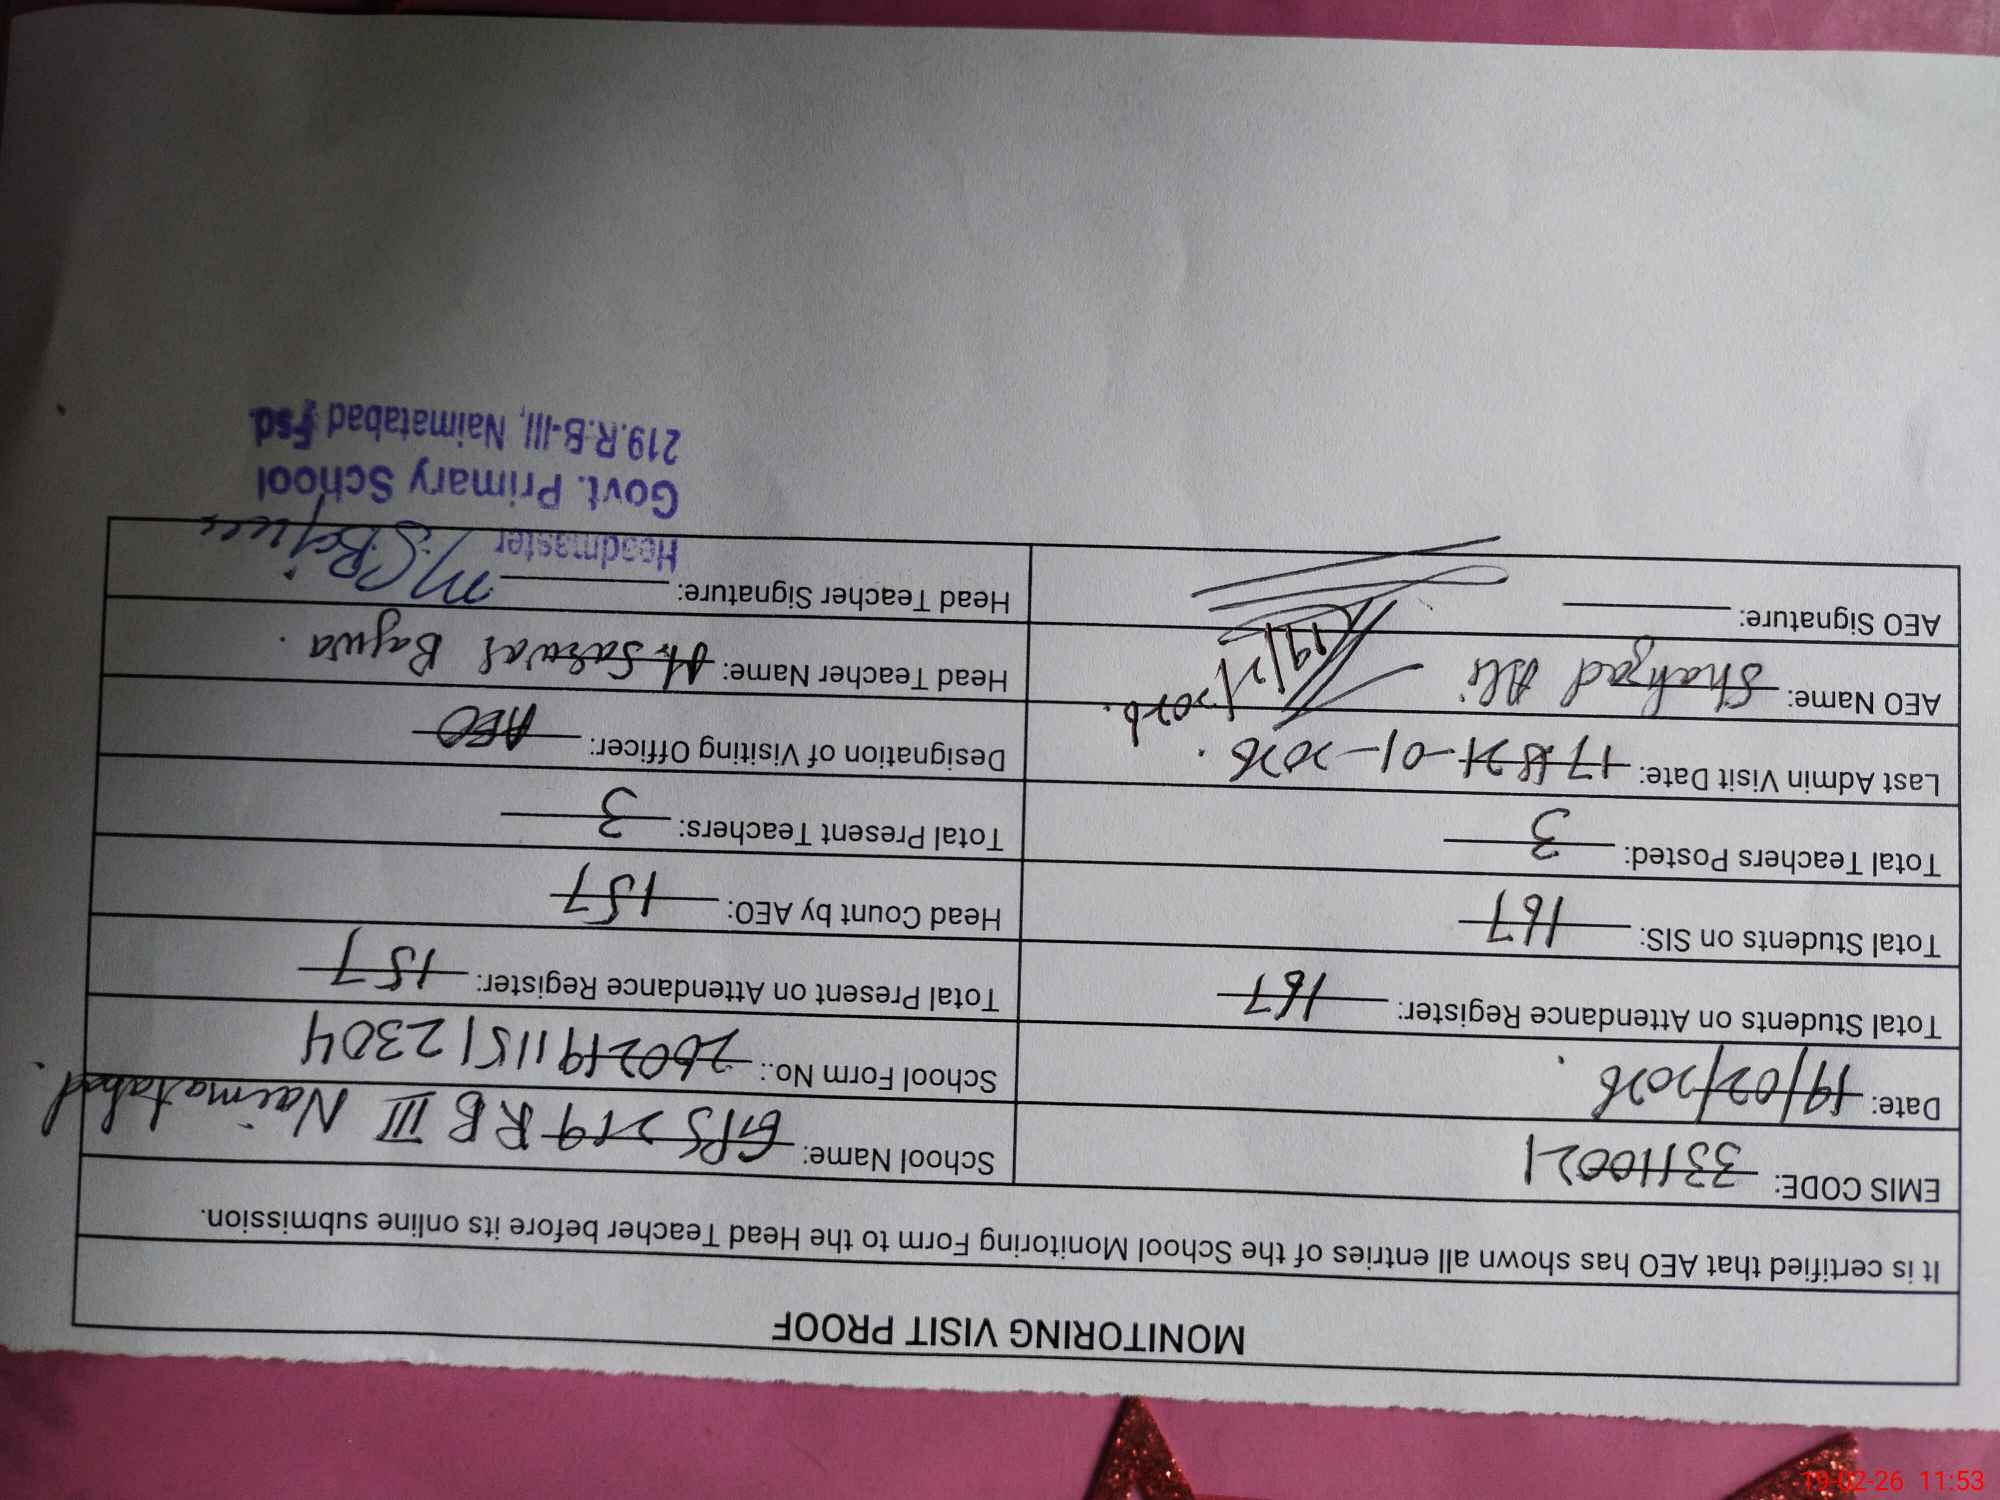 MONITORING VISIT PROOF
It is certified that AEO has shown all entries of the School Monitoring Form to the Head Teacher before its online submission.
EMIS CODE: 33110021 School Name: GPS 219 RB III Naimatabad.
Date: 19/02/2026. School Form No.: 26021911512304
Total Students on Attendance Register: 167 Total Present on Attendance Register: 157
Total Students on SIS: 167 Head Count by AEO: 157
Total Teachers Posted: 3 Total Present Teachers: 3
Last Admin Visit Date: 21-01-2026. Designation of Visiting Officer: AEO
AEO Name: Shahzad Ali Head Teacher Name: M. Sarwar Bajwa.
19/2/2026.
AEO Signature: Head Teacher Signature:
Headmaster
Govt. Primary School
219.R.B-III, Naimatabad Fsd.
19-02-26 11:53